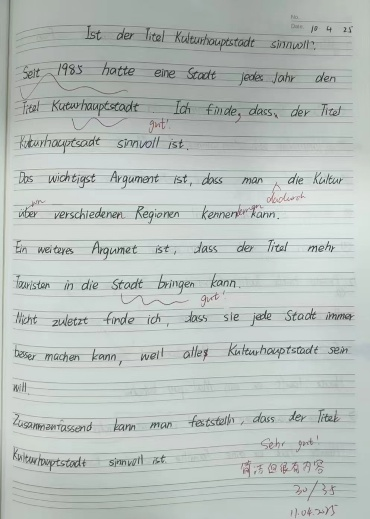 No.
Date 10 4 25
Ist der Titel Kulturhauptstadt sinnvoll?
Seit 1985 hatte eine Stadt jedes Jahr den
Titel Kuturhauptstadt Ich finde, dass, der Titel
gut!
Kuturhauptsadt sinnvoll ist.
Das wichtigst Argument ist, dass man die Kultur
dadurch
über verschiedenen Regionen kennen kann.
Ein weiteres Argumet ist, dass der Titel mehr
Touristen in die Stadt bringen kann.
gut!
Nicht zuletzt finde ich, dass sie jede Stadt immer
besser machen kann, weil alles Kulturhauptstadt sein
will.
Zusammenfassend kann man feststelln, dass der Titel
Sehr gut!
Kulturhauptstadt sinnvoll ist.
简洁但很有内容
30/35
11.04.2025